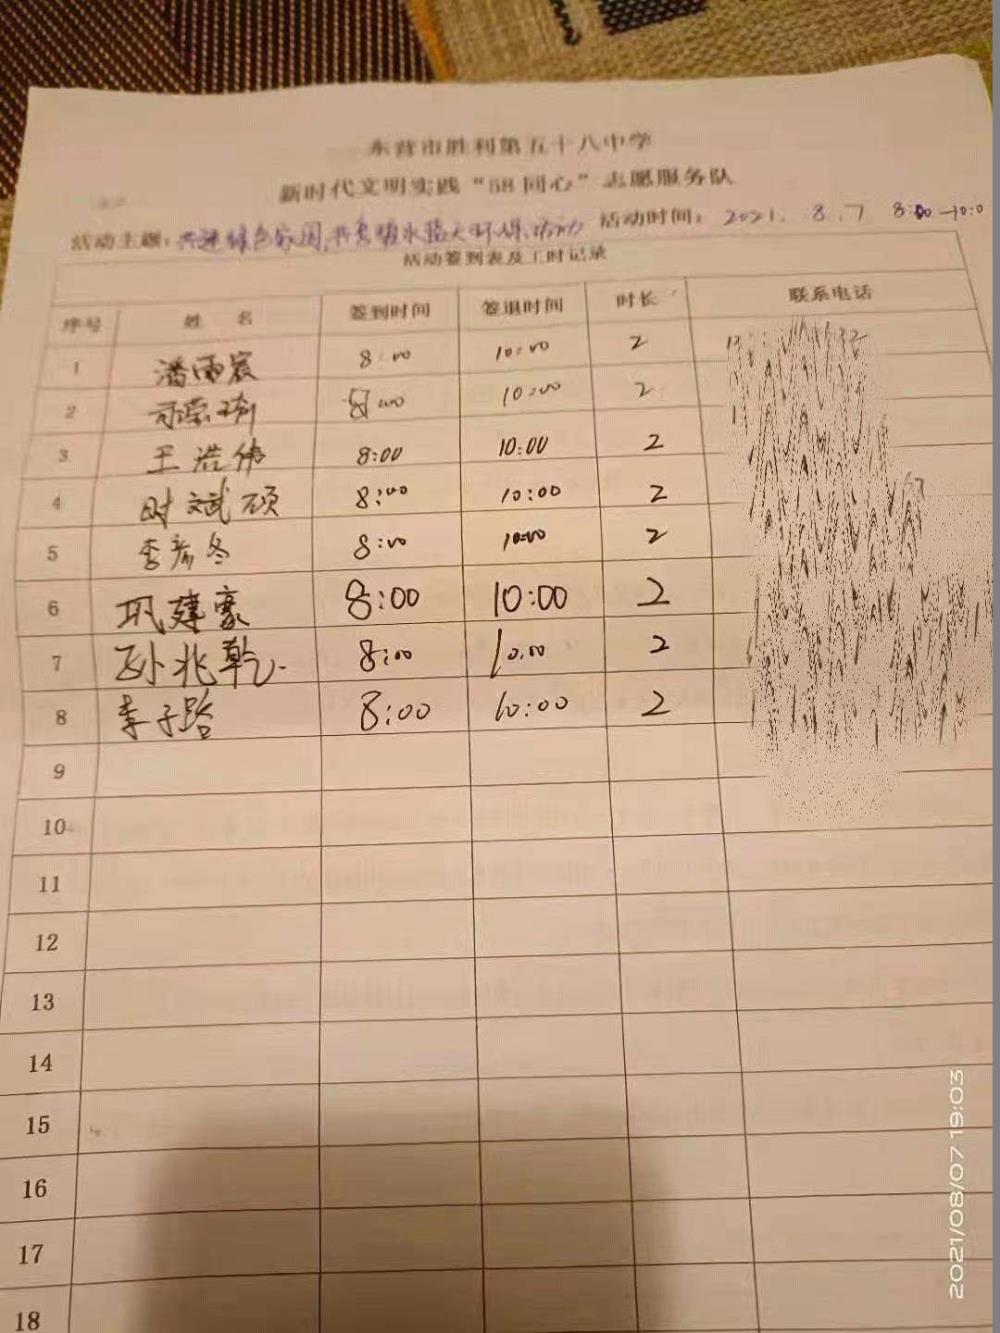 东营市胜利第五十八中学
新时代文明实践“58同心”志愿服务队
活动主题：共建绿色家园，共享碧水蓝天环保活动 活动时间：2021.8.7 8:00-10:0
活动签到表及工时记录
序号 姓名 签到时间 签退时间 时长 联系电话
1 潘雨宸 8:00 10:00 2
2 8:00 10:00 2
3 王浩伟 8:00 10:00 2
4 时斌硕 8:00 10:00 2
5 李彦冬 8:00 10:00 2
6 巩建豪 8:00 10:00 2
7 孙兆乾 8:00 10:00 2
8 李子路 8:00 10:00 2
9
10
11
12
13
14
15
16
17
18
2021/08/07 19:03